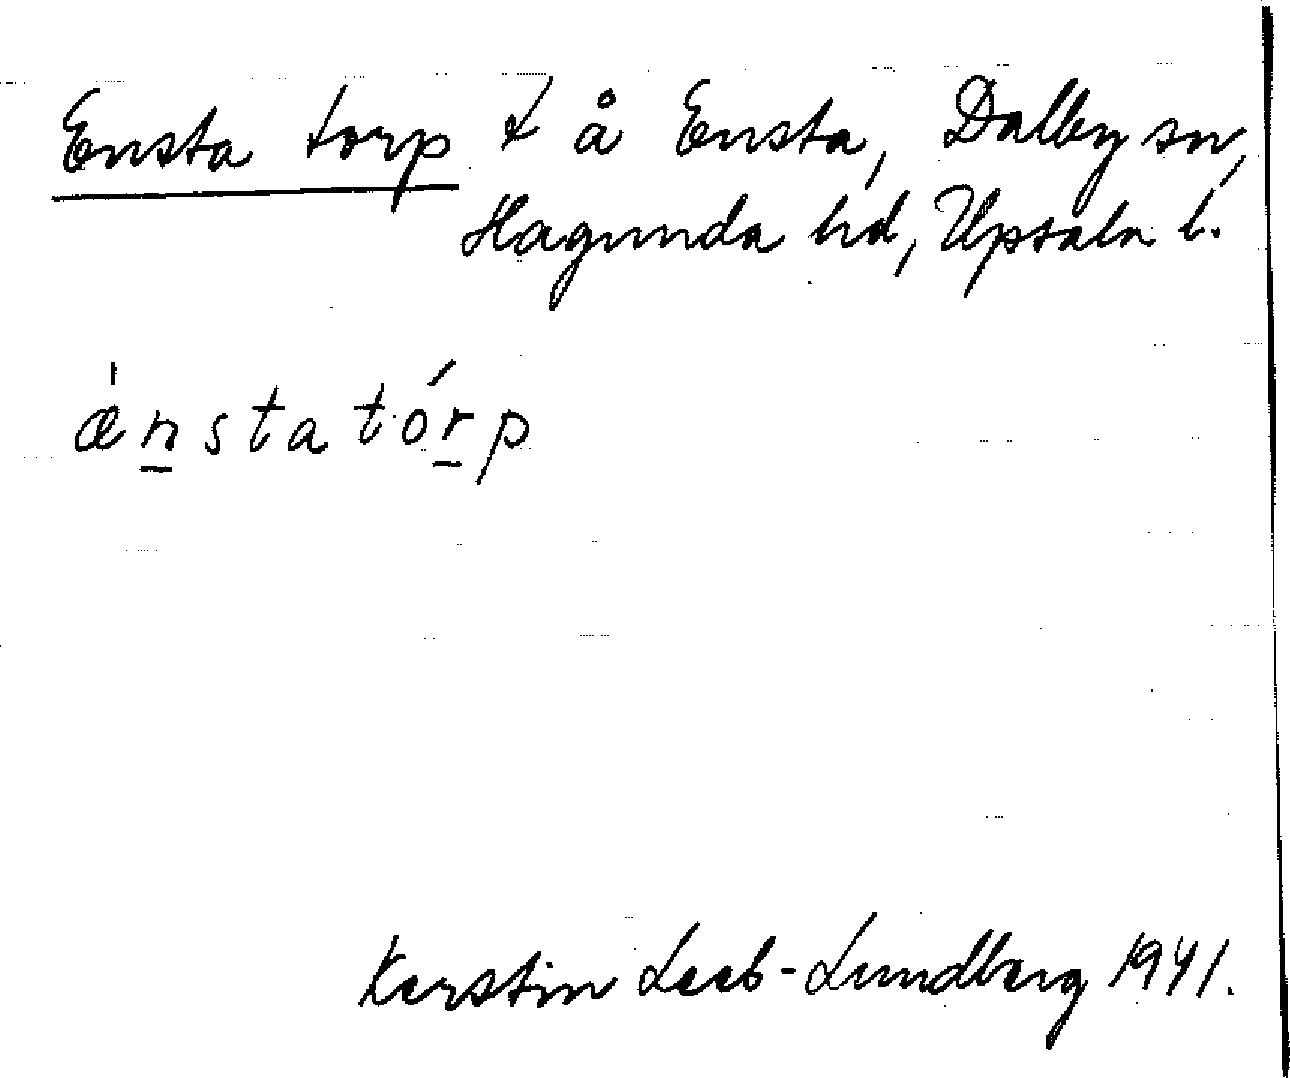 Ensta torp t å Ensta, Dalby sn,
Hagunda hd, Upsala l.
ǽn̲statór̲p
Kerstin Leeb-Lundberg 1941.